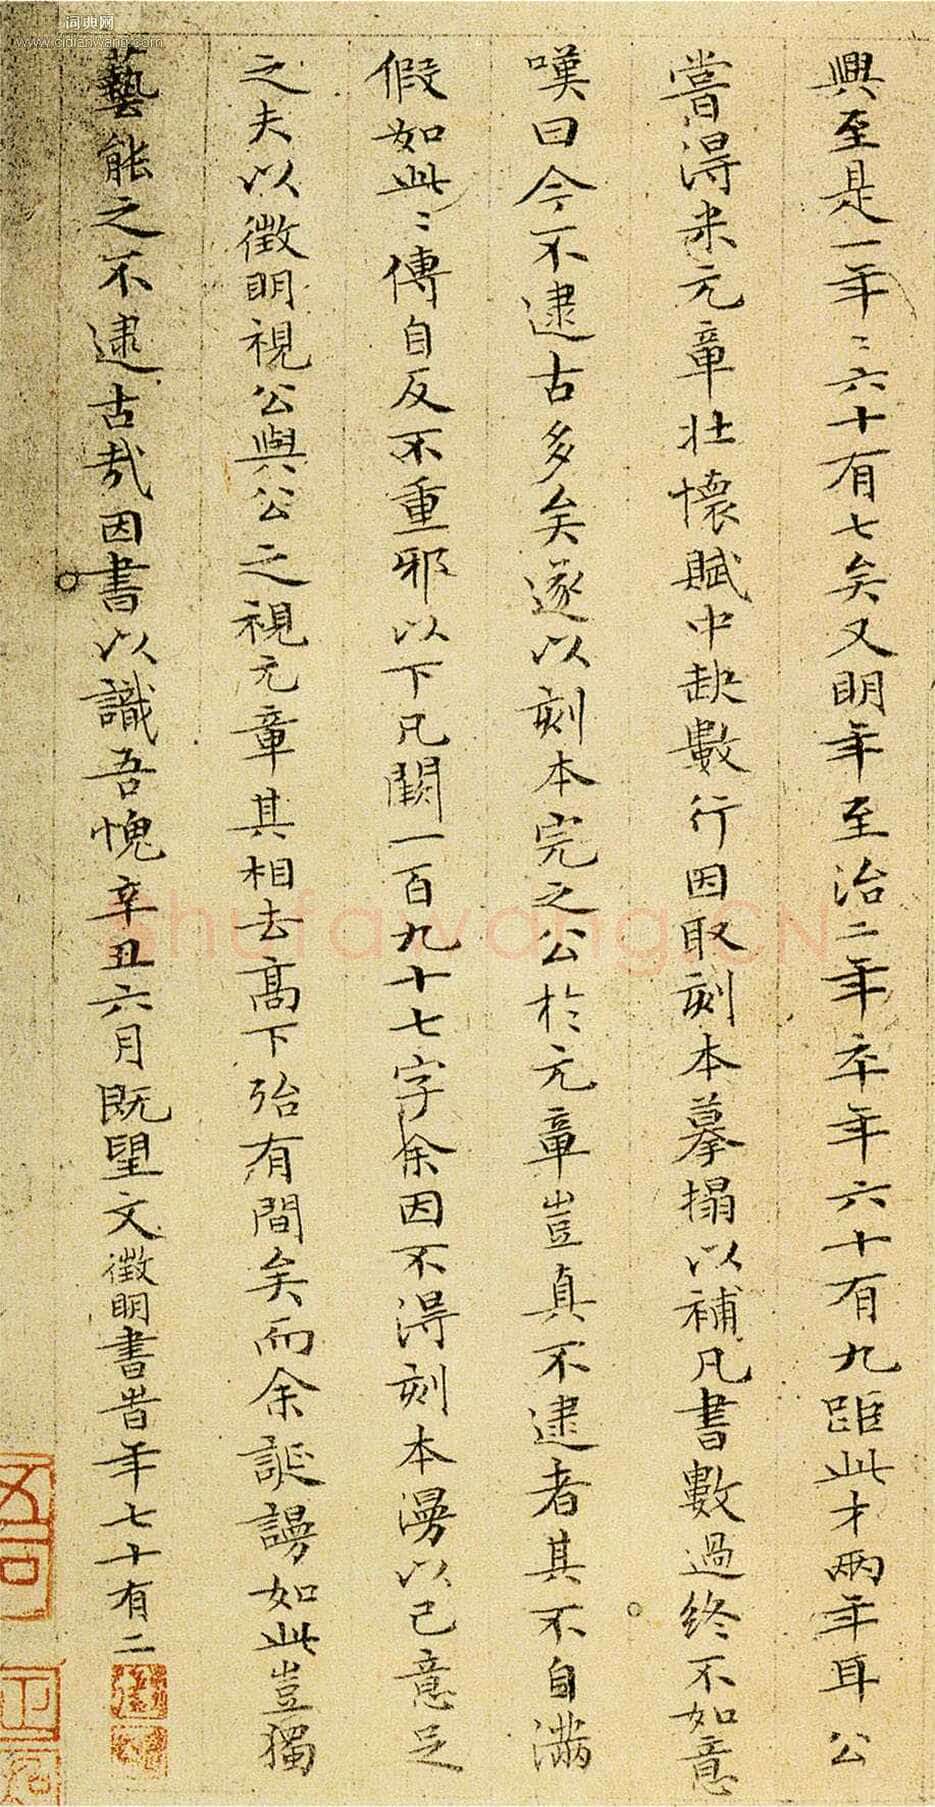 興至是一年〻六十有七矣又明年至治二年卒年六十有九距此才兩年耳公
嘗得米元章壯懷賦中缺數行因取刻本摹搨以補凡書數過終不如意
嘆曰今不逮古多矣遂以刻本完之公於元章豈真不逮者其不自滿
假如此〻傳自反不重邪以下凡闕一百九十七字余因不得刻本漫以己意足
之夫以徵明視公與公之視元章其相去高下殆有間矣而余誕謾如此豈獨
藝能之不逮古哉因書以識吾愧辛丑六月既望文徵明書昔年七十有二
词典网
www.cidianwang.com
shufawang.CN